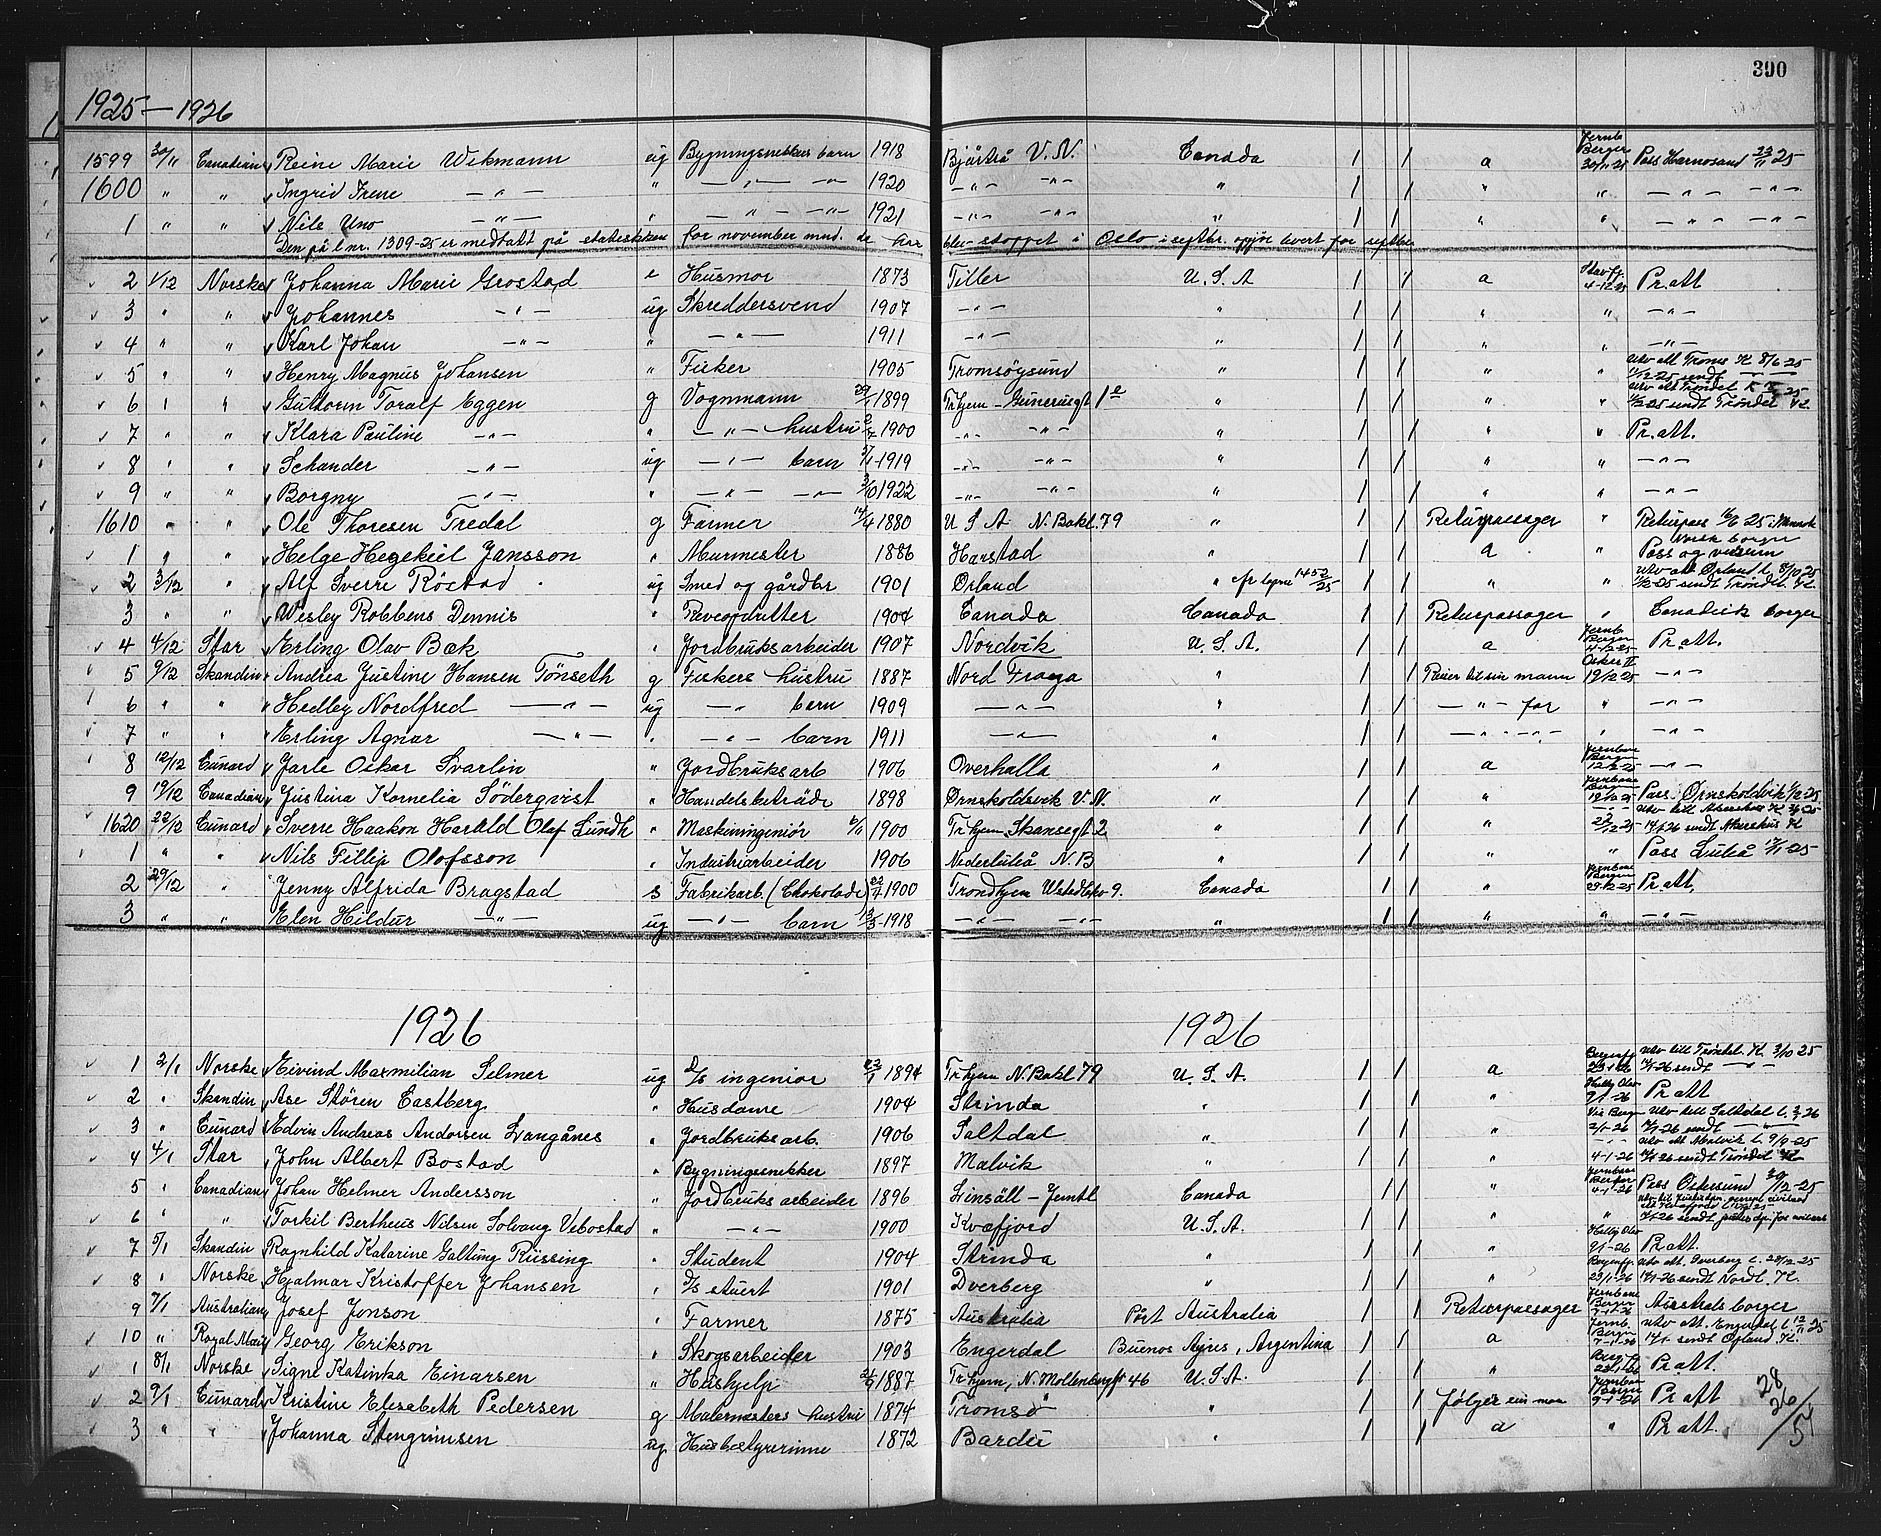 390
1925-1926
1599 30/11 Canadian Reine Marie Wikmann ug Bygningssnekkers barn 1918 Bjärtrå V.N. Canada / / a Jernb. Bergen 30/11-25 Pass Härnosand 23/11 25
1600 " " Ingrid Irene -"- " -"- -"- 1920 -"- -"- " / / " " -"- -"-
1 " " Nils Uno -"- " -"- -"- 1921 -"- -"- " / / " " -"- -"-
Den på l.nr. 1309-25 er medtatt på statistikken for november mnd. da har blev stoppet i Oslo i septbr. for septbr
2 1/12 Norske Johanna Marie Grostad e Husmor 1873 Tiller U.S.A / / a Stavfj. 4-12-25 Pr. att
3 " " Johannes -"- ug Skreddersvend 1907 -"- " / / " " -"-
4 " " Karl Johan -"- " -"- 1911 -"- " / / " " -"-
5 " " Henry Magnus Johansen " Fisker 1905 Tromsøysund " / / " " utv. att Troms K 8/6-25 11/12-25 sendt -"-
6 " " Guttorm Toralf Eggen g Vognmann 29/1 1899 Tr.hjem - 1e " / / " " utv. att Trøndel. K 25 11/12-25 sendt Trøndel K.
7 " " Klara Pauline -"- " -"- hustru 1900 -"- -"- " / / " " Pr. att.
8 " " Schander -"- ug -"- barn 5/1-1919 -"- -"- " / / " " -"-
9 " " Borgny -"- " -"- -"- 3/10 1922 -"- -"- " / / " " -"-
1610 " " Ole Thoresen Tredal g Farmer 14/4 1880 U.S.A. N. Bakl. 79 " / / Returpassager " Returpass 16/6 25 Norsk borger
1 " " Helge Hegekiel Jansson " Murmester 1886 Harstad " / / a " Pass og visum
2 3/12 " Alf Sverre Röstad ug Smed og gårdbr 1901 Ørland " 1452/25 / / " " utv. att Ørland L. 8/10 25 11/12-25 sendt Trøndel. K.
3 " " Wesley Robbens Dennis " Reveopdretter 1904 Canada Canada / / Returpassager " Canadisk borger
4 4/12 Star Erling Olav Bæk " Jordbruksarbeider 1907 Nordvik U.S.A. / / a Jernb. Bergen 4-12-25 Pr. att.
5 9/12 Skandin Andrea Justine Hansen Tönseth g Fiskers hustru 1887 Nord Frøya " / / Reiser til sin mann Oskar II 19/12 25 -"-
6 " " Hedley Nordfred -"- ug -"- barn 1909 -"- " / / -"- far " -"-
7 " " Erling Agnar -"- " -"- barn 1911 -"- " / / -"- -"- " -"-
8 12/12 Cunard Jarle Oskar Svarlin " Jordbruksarb 1906 Overhalla " / / a Jernbane Bergen 12/12-25 -"-
9 19/12 Canadian Justina Kornelia Söderqvist " Handelsbeträde 1898 Ørnskoldsvik V.N. " / / " Jernbane Bergen 19/12 25 Pass. Ørnskoldsvik 1/12 25
1620 22/12 Cunard Sverre Haakon Harald Olaf Lundh " Maskiningeniör 6/11 1900 Tr.hjem Skansegt 2 " / / " 22/12 25 utv till Akershus K 25 14/1-26 sendt Akershus K
1 " " Nils Fillip Olofsson " Industriarbeider 1906 Nederluleå N.B " / / " " Pass Luleå 25
2 29/12 " Jenny Alfrida Bragstad s Fabrikarb (Chokolade) 1900 Trondhjem 9. Canada / / " Jernbane Bergen 29-12-25 Pr. att.
3 " " Elen Hildur -"- ug -"- barn 13/3-1918 -"- -"- " / / " " -"-
1926 1926
1 2/1 Norske Eivind Maxmilian Selmer ug d/s ingeniör 23/1 1894 Tr.hjem N. Bakl 79 U.S.A. / / a Bergenfj. 23/1-26 utv till Trøndel. K. 3/10 25 14/1-26 sendt -"-
2 " Skandin Ase Stören Eastberg " Husdame 1904 Strinda " / / " Hellig Olav 9/1-26 Pr att
3 " Cunard Edvin Andreas Andorsen Langånes " Jordbruksarb. 1906 Saltdal " / / " Via Berg. 2/1-26 utv till Saltdal L. 2/1 26 14/1-26 sendt -"-
4 4/1 Star John Albert Bostad " Bygningssnekker 1897 Malvik " / / " -"- 4-1-26 utv att Malvik L. 9/9-25 14/1-26 sendt Trøndel K
5 " Canadian Johan Helmer Andersson " Jordbruksarbeider 1896 Linsäll - Jemtl Canada / / " Jernbane Bergen 4-1-26 Pass Ostersund 30/12-25
6 " " Torkil Bertheus Nilsen Solvang Vebostad " -"- 1900 Kvæfjord U.S.A. / / " " 14/1-26 sendt justisdp. for
7 5/1 Skandin Ragnhild Katarine Galtung Rüssing " Student 1904 Strinda " / / " Hellig Olav 9/1-26 Pr. att.
8 " Norske Hjalmar Kristoffer Johansen " d/s stuert 1901 Dverberg " / / " Bergenfj. 23/1-26 utv att. Dverberg L. 28/12-25 14/1-26 sendt Nordl. K.
9 7/1 Australian Josef Jonson " Farmer 1875 Australia Port Australia / / Returpassager Jernbane Bergen 7-1-26 Australsk borger
10 " Royal Mail Georg Erikson " Skogsarbeider 1903 Engerdal Buenos Ayres, Argentina / / a Jernb. Bergen 7-1-26 utv att. Engerdal L 12/11 25 14/1- sendt Opland K.
1 8/1 Norske Signe Katinka Einarsen " Hushjelp 1887 Tr.hjem, N. Mollenberggt 46 U.S.A. / / " Berg fj 23/1-26 Pr att.
2 9/1 Cunard Kristine Elesabeth Pedersen g Malermesters hustru 1874 Tromsø " / / følger sin man Jernbane Bergen 9-1-26 Pr att
3 " " Johanna Stengrimsen ug Husbestyrerinne 1872 Bardu " / / a " Pr att.
28
26/5